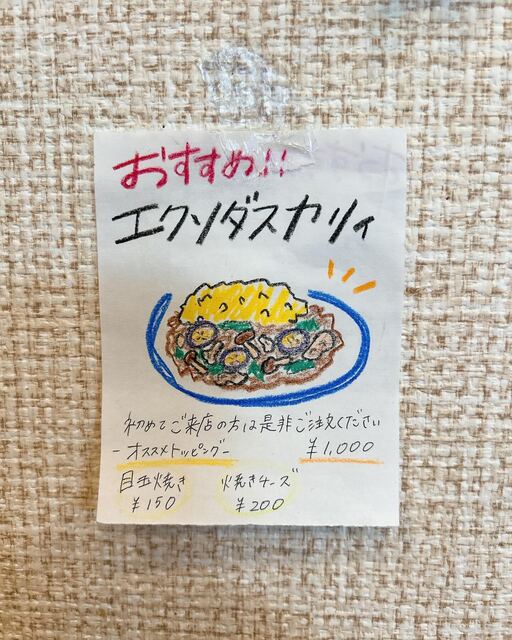 おすすめ!!
エクソダスカリィ
初めてご来店の方は是非ご注文ください
-オススメトッピング-
¥1,000
目玉焼き
¥150
焼きチーズ
¥200